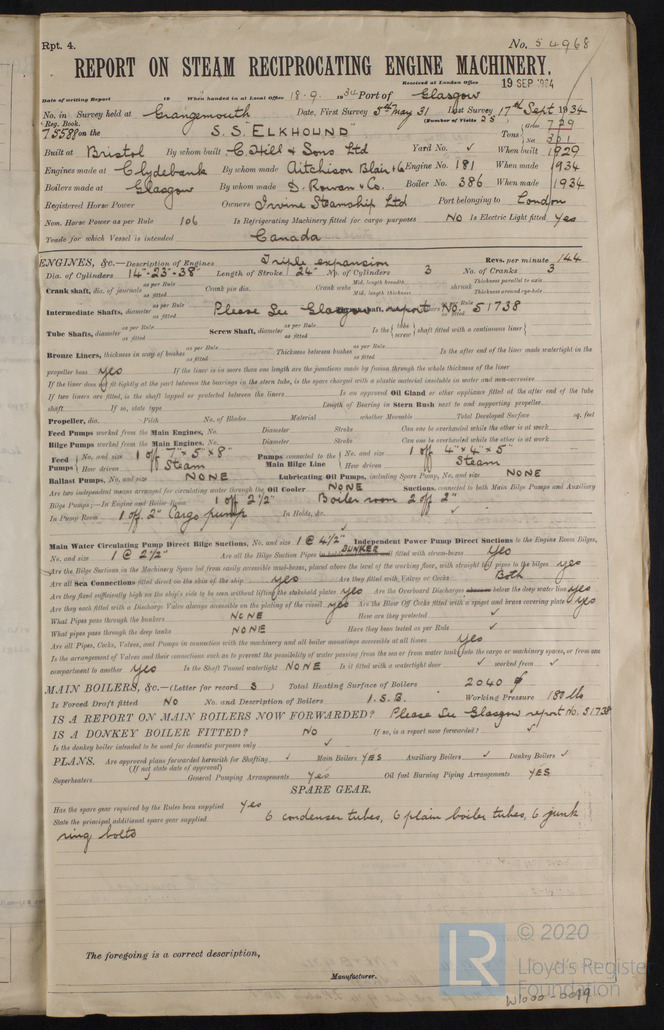 Rpt. 4. No. 54968
REPORT ON STEAM RECIPROCATING ENGINE MACHINERY.
Received at London Office 19 SEP 1934
Date of writing Report 19 When handed in at Local Office 18.9. 1934 Port of Glasgow
No. in Survey held at Grangemouth Date, First Survey 5th May 31 Last Survey 17th Sept 1934
Reg. Book. (Number of Visits 25)
75588 on the S.S. ELKHOUND Tons Gross 729 Net 301
Built at Bristol By whom built C. Hill & Sons Ltd Yard No. ✓ When built 1929
Engines made at Clydebank By whom made Aitchison Blair & Co Engine No. 181 When made 1934
Boilers made at Glasgow By whom made D. Rowan & Co. Boiler No. 386 When made 1934
Registered Horse Power Owners Irvine Steamship Ltd Port belonging to London
Nom. Horse Power as per Rule 106 Is Refrigerating Machinery fitted for cargo purposes No Is Electric Light fitted Yes
Trade for which Vessel is intended Canada
ENGINES, &c.—Description of Engines Triple expansion Revs. per minute 144
Dia. of Cylinders 14"-23"-38" Length of Stroke 24" No. of Cylinders 3 No. of Cranks 3
Crank shaft, dia. of journals as per Rule as fitted Crank pin dia. Crank webs Mid. length breadth Mid. length thickness shrunk Thickness parallel to axis Thickness around eye-hole
Intermediate Shafts, diameter as per Rule as fitted Please See Glasgow report No. 51738
Tube Shafts, diameter as per Rule as fitted Screw Shaft, diameter as per Rule as fitted Is the tube screw shaft fitted with a continuous liner
Bronze Liners, thickness in way of bushes as per Rule as fitted Thickness between bushes as per Rule as fitted Is the after end of the liner made watertight in the
propeller boss yes If the liner is in more than one length are the junctions made by fusion through the whole thickness of the liner
If the liner does not fit tightly at the part between the bearings in the stern tube, is the space charged with a plastic material insoluble in water and non-corrosive
If two liners are fitted, is the shaft lapped or protected between the liners Is an approved Oil Gland or other appliance fitted at the after end of the tube
shaft If so, state type Length of Bearing in Stern Bush next to and supporting propeller
Propeller, dia. Pitch No. of Blades Material whether Moveable Total Developed Surface sq. feet
Feed Pumps worked from the Main Engines, No. Diameter Stroke Can one be overhauled while the other is at work
Bilge Pumps worked from the Main Engines, No. Diameter Stroke Can one be overhauled while the other is at work
Feed Pumps No. and size 1 off 7" × 5" × 8" Pumps connected to the Main Bilge Line No. and size 1 off 4" × 4" × 5"
How driven Steam How driven Steam
Ballast Pumps, No. and size NONE Lubricating Oil Pumps, including Spare Pump, No. and size NONE
Are two independent means arranged for circulating water through the Oil Cooler NONE Suctions, connected to both Main Bilge Pumps and Auxiliary
Bilge Pumps;—In Engine and Boiler Room 1 off 2½" Boiler room 2 off 2"
In Pump Room 1 off 2" Cargo pump In Holds, &c. ✓
Main Water Circulating Pump Direct Bilge Suctions, No. and size 1 @ 4½" Independent Power Pump Direct Suctions to the Engine Room Bilges,
No. and size 1 @ 2½" Are all the Bilge Suction Pipes BUNKER fitted with strum-boxes yes
Are the Bilge Suctions in the Machinery Space led from easily accessible mud-boxes, placed above the level of the working floor, with straight tail pipes to the bilges yes
Are all Sea Connections fitted direct on the skin of the ship yes Are they fitted with Valves or Cocks Both
Are they fixed sufficiently high on the ship's side to be seen without lifting the stokehold plates yes Are the Overboard Discharges below the deep water line yes
Are they each fitted with a Discharge Valve always accessible on the plating of the vessel yes Are the Blow Off Cocks fitted with a spigot and brass covering plate yes
What Pipes pass through the bunkers NONE How are they protected ✓
What pipes pass through the deep tanks NONE Have they been tested as per Rule ✓
Are all Pipes, Cocks, Valves, and Pumps in connection with the machinery and all boiler mountings accessible at all times Yes
Is the arrangement of Valves and their connections such as to prevent the possibility of water passing from the sea or from water tanks into the cargo or machinery spaces, or from one
compartment to another yes Is the Shaft Tunnel watertight NONE Is it fitted with a watertight door ✓ worked from ✓
MAIN BOILERS, &c.—(Letter for record S) Total Heating Surface of Boilers 2040
Is Forced Draft fitted No No. and Description of Boilers 1. S.B. Working Pressure 180 lbs
IS A REPORT ON MAIN BOILERS NOW FORWARDED? Please See Glasgow report No. 51738
IS A DONKEY BOILER FITTED? No If so, is a report now forwarded? ✓
Is the donkey boiler intended to be used for domestic purposes only ✓
PLANS. Are approved plans forwarded herewith for Shafting ✓ Main Boilers YES Auxiliary Boilers ✓ Donkey Boilers ✓
(If not state date of approval)
Superheaters ✓ General Pumping Arrangements Yes Oil fuel Burning Piping Arrangements YES
SPARE GEAR.
Has the spare gear required by the Rules been supplied yes
State the principal additional spare gear supplied 6 condenser tubes, 6 plain boiler tubes, 6 junk
ring bolts
The foregoing is a correct description,
Manufacturer.
LR © 2020
Lloyd's Register
Foundation
W1000-0019